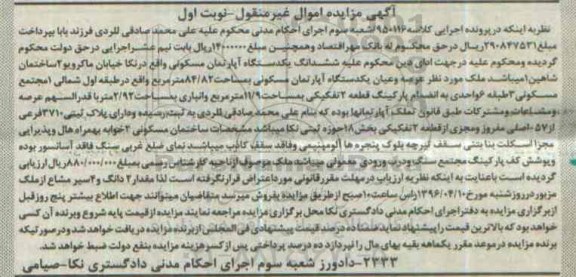 آگهی مزایده اموال غیرمنقول-نوبت اول
نظریه اینکه درپرونده اجرایی کلاسه ۹۵۰۱۱۶شعبه سوم اجرای احکام مدنی محکوم علیه علی محمد صادقی للردی فرزند بابا بپرداخت
مبلغ ۲۹۰۸۴۷۵۳۱ریال در حق محکوم له بانک مهراقتصاد وهمچنین مبلغ ۱۴۰۰۰۰۰۰ریال بابت نیم عشراجرایی درحق دولت محکوم
گردیده ومحکوم علیه درجهت ادای دین محکوم علیه ششدانگ یکدستگاه آپارتمان مسکونی واقع درنکا خیابان ماکروبو۲ساختمان
شاهین۱میباشد. ملک مورد نظر عرصه وعیان یکدستگاه آپارتمان مسکونی بمساحت۸۴/۸۲مترمربع واقع درطبقه اول شمالی ۱مجتمع
مسکونی۳طبقه ۶واحدی به انضمام پارکینگ قطعه ۲تفکیکی بمساحت۱۱/۹مترمربع وانباری بمساحت۲/۹۲متربا قدرالسهم عرصه
ومشاعات ومشترکات طبق قانون تملک آپارتمانها بوده که بنام علی محمد صادقی للردی به ثبت رسیده ودارای پلاک ثبتی۳۷۱۰فرعی
از۵۷-اصلی مفروز ومجزی ازقطعه ۲تفکیکی بخش۱۸حوزه ثبتی نکا میباشد مشخصات ساختمان مسکونی ۲خوابه بهمراه هال وپذیرایی
مجزا اسکلت بنا بتنی سقف تیرچه بلوک پنجره ها آلومینیمی وفاقد سقف کاذب میباشد نمای ضلع غربی سنگ فاقد آسانسور بوده
وپوشش کف پارکینگ مجتمع سنگ ودرب ورودی معمولی میباشد ملک موصوف ازناحیه کارشناس رسمی بمبلغ۸۸۰/۰۰۰/۰۰۰ریال ارزیابی
گردیده است باعنایت به اینکه نظریه ارزیاب درمهلت مقرر قانونی مورد اعتراض قرار نگرفته است لذا مقدار۲ دانگ و۴سیر مشاع از ملک
مزبور درروزشنبه مورخ۱۳۹۶/۰۴/۱۰راس ساعت۱۰صبح ازطریق مزایده بفروش میرسد متقاضیان میتوانند جهت اطلاع بیشتر پنج روزقبل
ازبرگزاری مزایده به دفتراجرای احکام مدنی دادگستری نکا محل برگزاری مزایده مراجعه نمایند مزایده از قیمت پایه شروع وبرنده آن کسی
خواهد بود که بالاترین قیمت را پیشنهاد نماید ضمنا ده درصد قیمت پیشنهادی فی المجلس ازبرنده مزایده دریافت خواهد شد ودرصورتیکه
برنده مزایده درموعد مقرر یکماهه بقیه بهای مال را نپردازد ده درصد پرداختی پس از کسرهزینه مزایده بنفع دولت ضبط خواهد شد.
۲۳۳۳-دادورز شعبه سوم اجرای احکام مدنی دادگستری نکا-صیامی